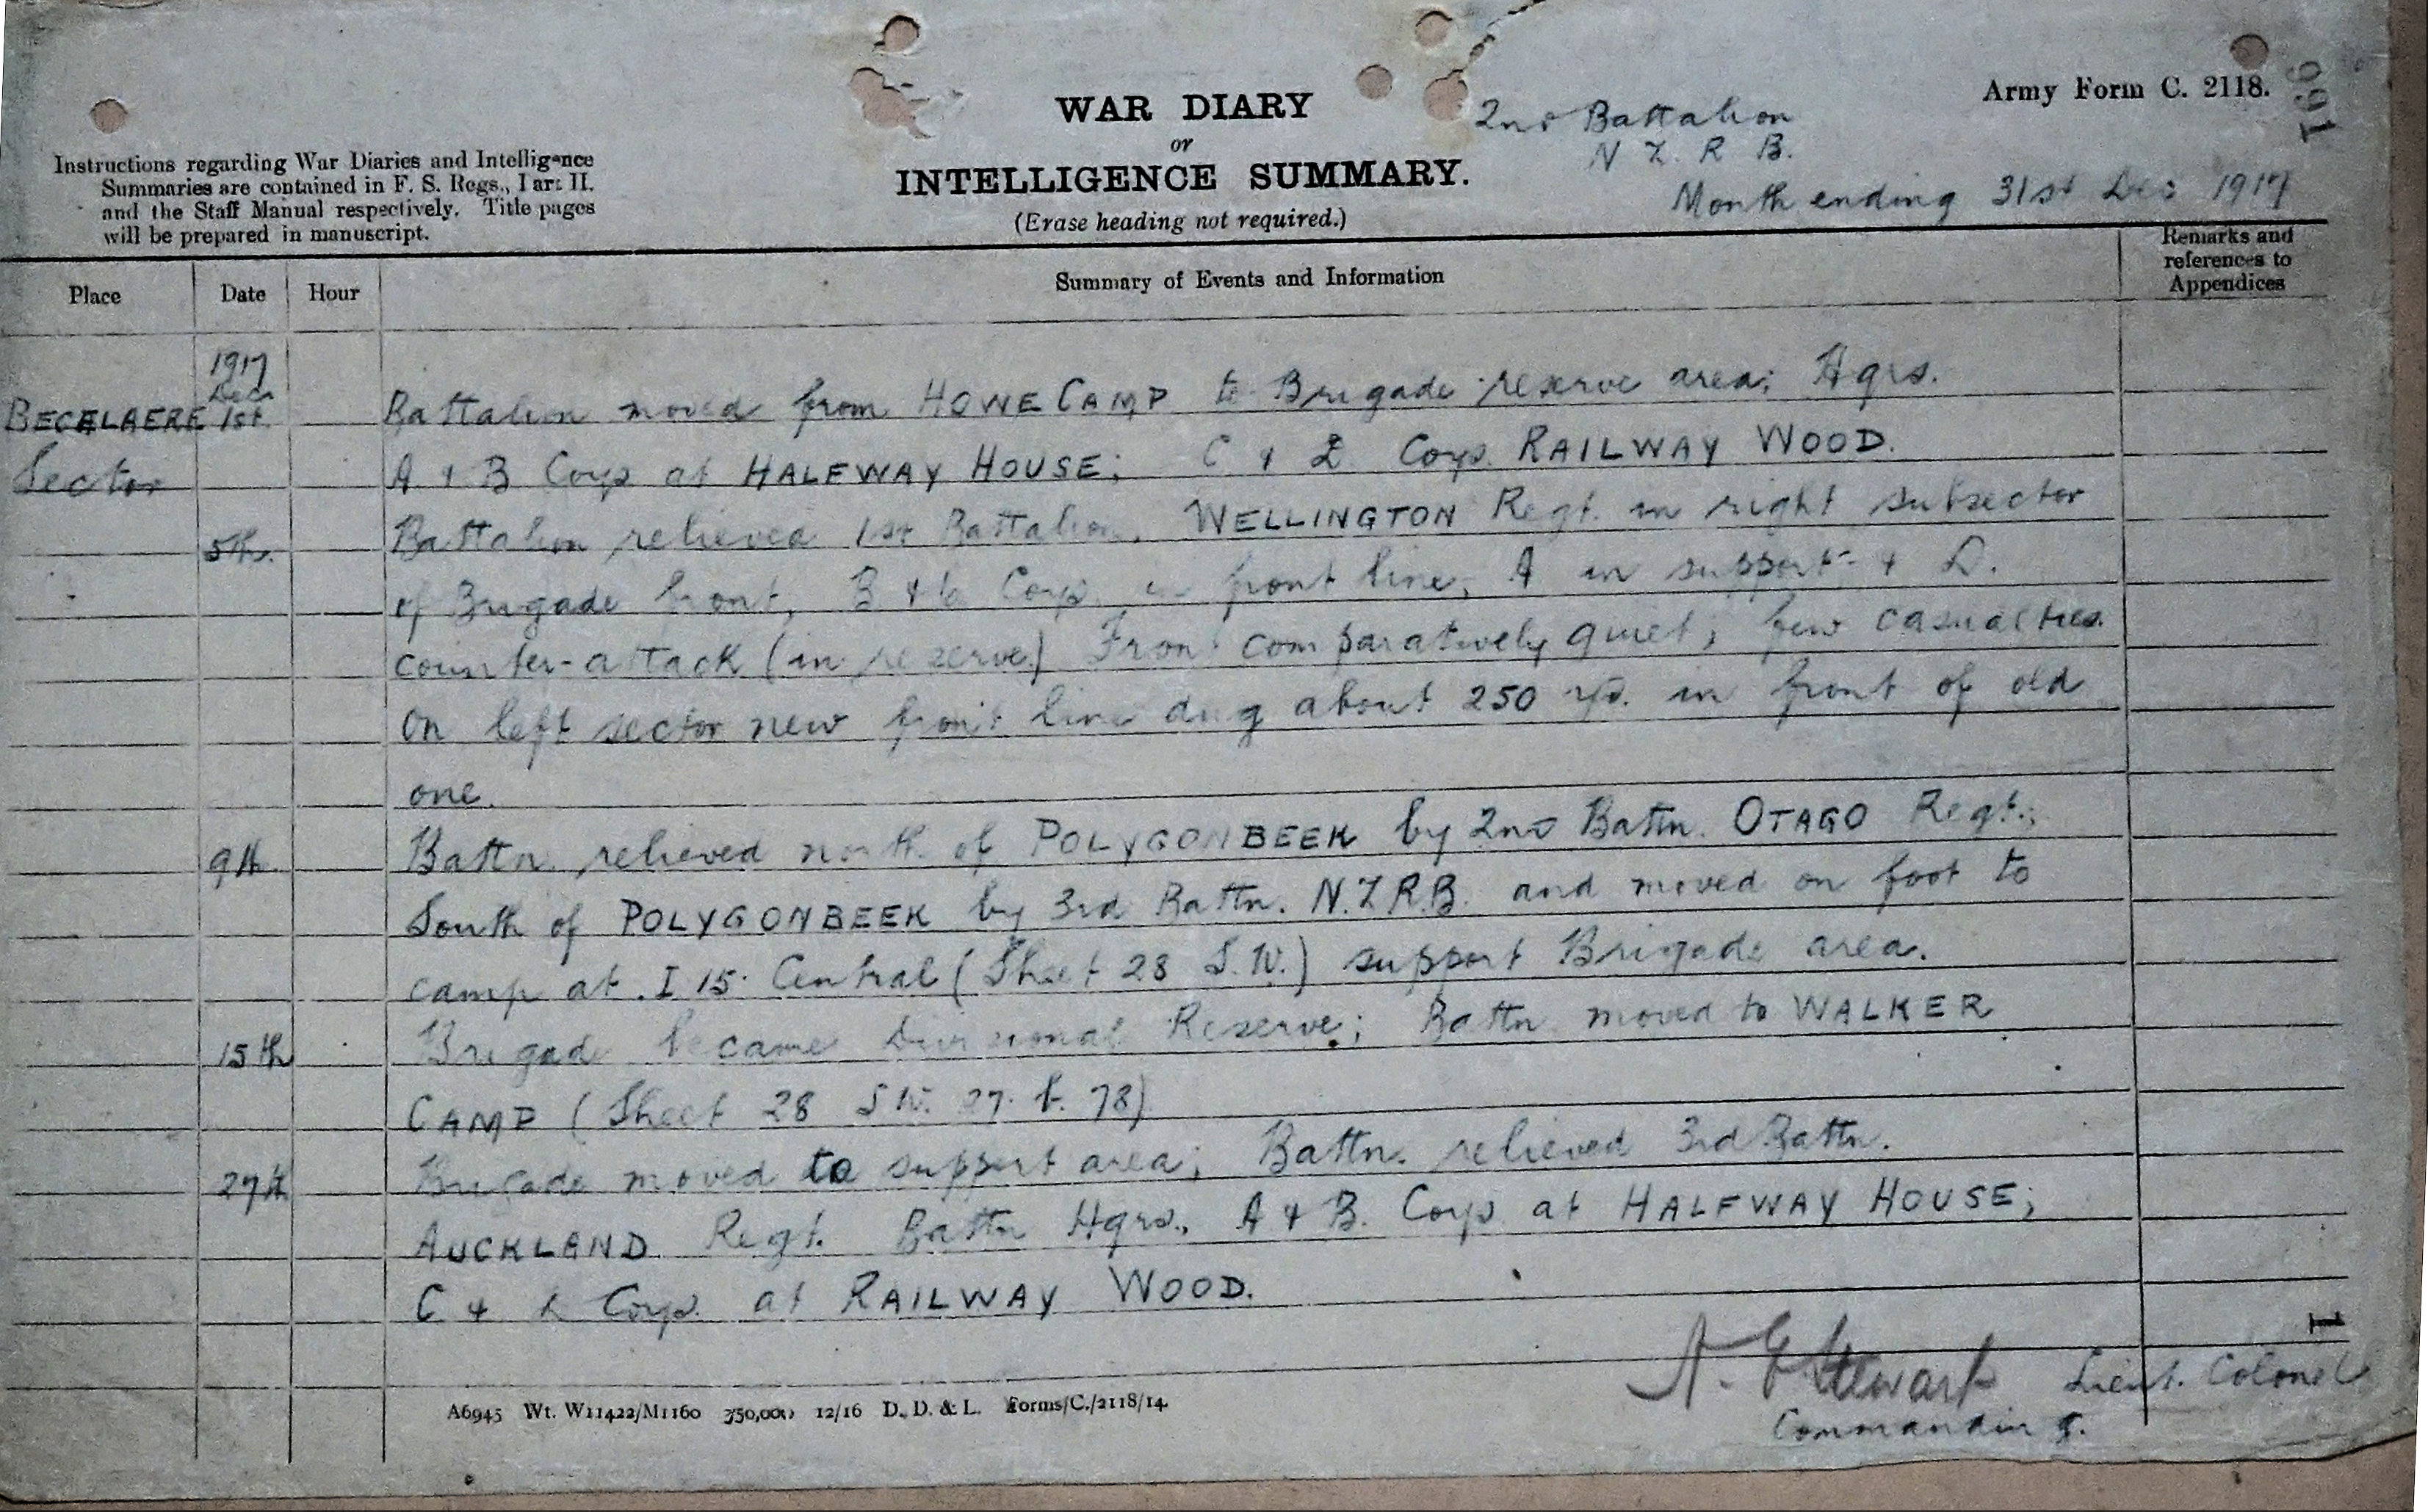 Army Form C. 2118.
991
WAR DIARY
or
INTELLIGENCE SUMMARY.
(Erase heading not required.)
2nd Battalion
N Z. R B.
Month ending 31st Dec 1917
Instructions regarding War Diaries and Intelligence
Summaries are contained in F. S. Regs., Part II.
and the Staff Manual respectively. Title pages
will be prepared in manuscript.
Place Date Hour Summary of Events and Information Remarks and
references to
Appendices
1917
Dec
BECELAERE 1st. Battalion moved from HOWE CAMP to Brigade reserve area; Hqrs.
Sector A & B Coys at HALFWAY HOUSE; C & D Coys. RAILWAY WOOD.
5th. Battalion relieved 1st Battalion, WELLINGTON Regt. in right subsector
of Brigade front, B & C Coys. in front line, A in support & D.
counter-attack (in reserve) Front comparatively quiet; few casualties.
On left sector new front line dug about 250 yds. in front of old
one.
9th. Battn. relieved north of POLYGONBEEK by 2nd Battn. OTAGO Regt.;
South of POLYGONBEEK by 3rd Battn. N.Z.R.B. and moved on foot to
camp at I 15 Central (Sheet 28 S.W.) support Brigade area.
15th Brigade became Divisional Reserve; Battn moved to WALKER
CAMP (Sheet 28 S W. 27. b. 78)
27th Brigade moved to support area; Battn. relieved 3rd Battn.
AUCKLAND Regt. Battn Hqrs., A & B. Coys at HALFWAY HOUSE;
C & D Coys. at RAILWAY WOOD.
A. E Stewart Lieut. Colonel
Commanding.
A6945 Wt. W11422/M1160 350,000 12/16 D. D. & L. Forms/C./2118/14.